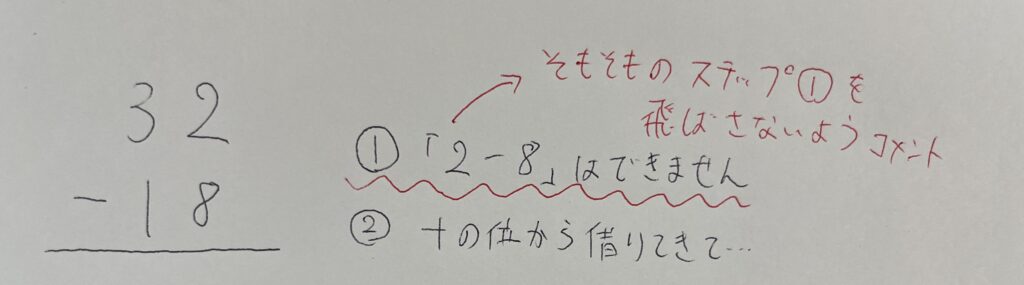 32
-18
そもそものステップ①を
飛ばさないようコメント
①「2-8」はできません
②十の位から借りてきて…